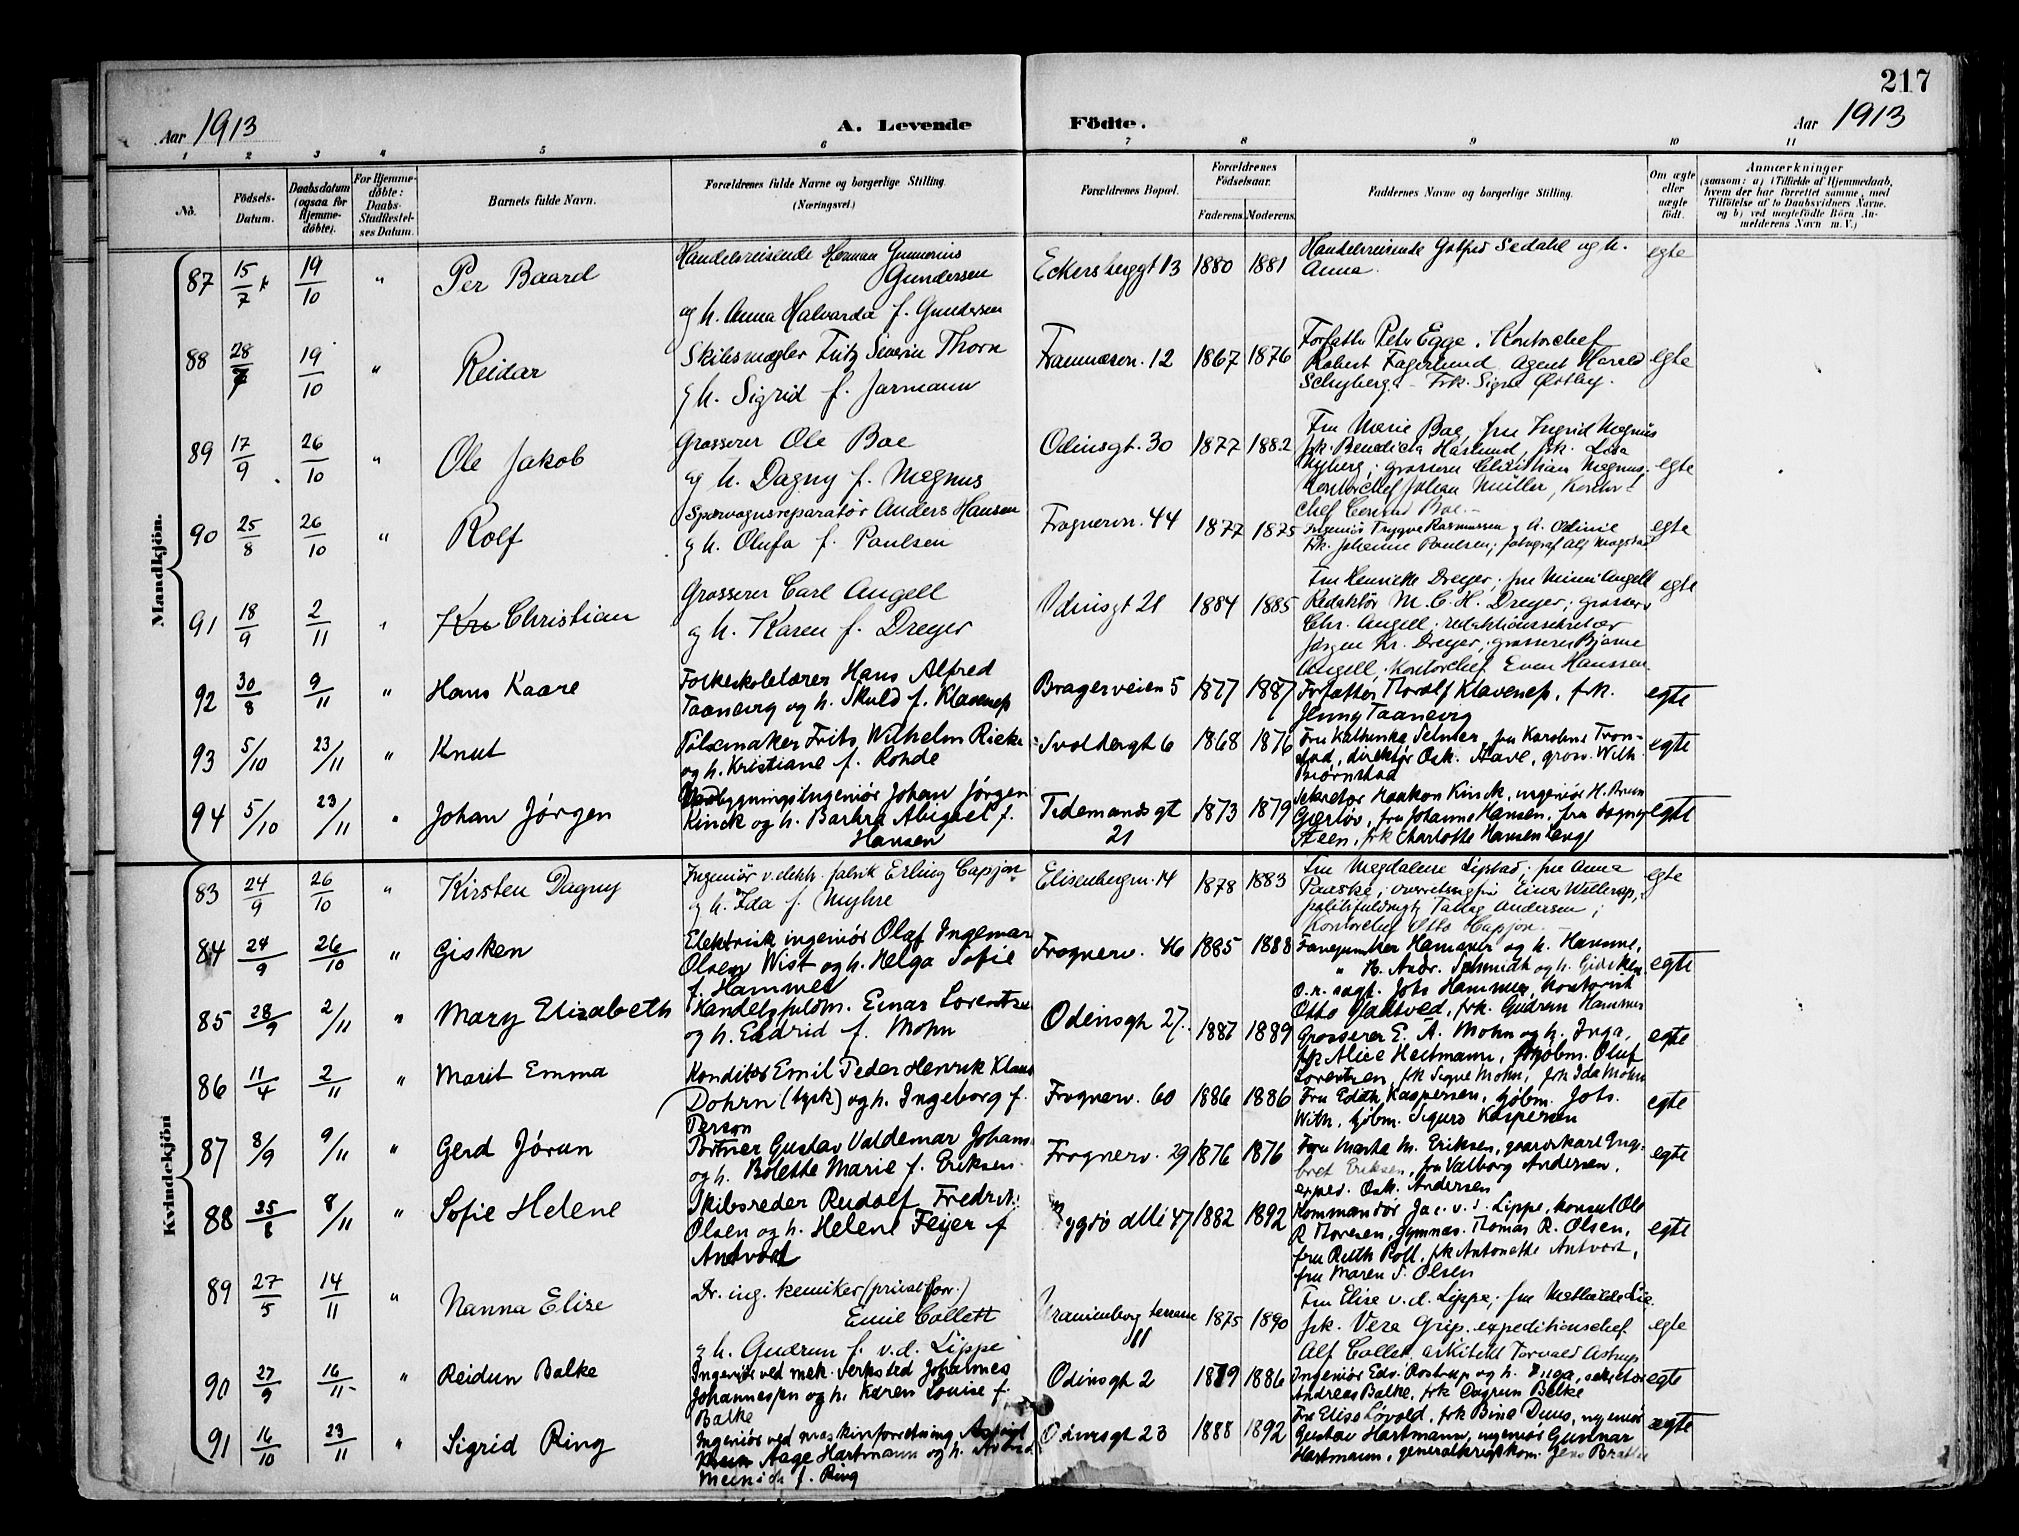 217
Aar 1913
A. Levende Födte.
Aar 1913
1 2 3 4 5 6 7 8 9 10 11
No.
Födsels-Datum.
Daabsdatum (ogsaa for Hjemme-döbte).
For Hjemme-döbte: Daabs-Stadfæstel-ses Datum.
Barnets fulde Navn.
Forældrenes fulde Navne og borgerlige Stilling.
(Næringsvei.)
Forældrenes Bopæl.
Forældrenes Födselsaar.
Faderens. Moderens.
Faddernes Navne og borgerlige Stilling.
Om ægte eller uægte födt.
Anmærkninger
(saasom: a) i Tilfælde af Hjemmedaab, hvem der har forrettet samme, med Tilföielse af to Daabsvidners Navne. og b) ved uegtefödte Börn An-melderens Navn m. V.)
Mandkjön.
87 15/7 19/10 " Per Baard
Handelsreisende Herman Gunnerius
Gundersen
og h. Anna Halvarda f. Gundersen
Eckersberggt 13 1880 1881
Handelsreisende Gotfred Sedahl og h.
Anna.
egte
88 28/7 19/10 " Reidar
Skibsmægler Fritz Severin Thorn
og h. Sigrid f. Jarmann
Framnæsvn. 12 1867 1876
Forfatter Peter Egge. Kontorchef
Robert Fagerlund, Agent Harald
Schyberg. - Frk. Signe Østby.
egte
89 17/9 26/10 " Ole Jakob
Grosserer Ole Boe
og h. Dagny f. Magnus
Odinsgt. 30 1877 1882
Fru Marie Boe, fru Ingrid Magnus
frk. Benedicta Haslund, frk. Lisa
Nyberg; grosserer Christian Magnus.
Kontorchef Johan Müller, Kontor-
chef Conrad Boe.-
egte
90 25/8 26/10 " Rolf
Sporvognsreparatør Anders Hansen
og h. Olufa f. Paulsen
Frognervn. 44 1877 1875
Ingeniør Trygve Rasmussen og h. Odinie
frk. Johanne Paulsen; fotograf Alf
egte
91 18/9 2/11 " Kri Christian
Grosserer Carl Angell
og h. Karen f. Dreyer
Odinsgt 21 1884 1885
Fru Henriette Dreyer; fru Minni Angell
Redaktør M. C. H. Dreyer; grosserer
Chr. Angell, redaktionssekretær
Jørgen Kr. Dreyer, grosserer Bjarne
Angell, kontorchef Even Hanssen
egte
92 30/8 9/11 " Hans Kaare
Folkeskolelærer Hans Alfred
Taanevig og h. Skuld f. Klaveness
Bragesveien 5 1877 1887
Forfatter Thorolf Klavenes, frk.
Jenny Taanevig
egte
93 5/10 23/11 " Knut
Pølsemaker Frits Wilhelm Rieke
og h. Kristiane f. Rohde
Svoldergt 6 1868 1876
Fru Kathinka Selmer, fru Karoline Tron-
stad, direktør Osk. Aave, gross. Wilh.
Biørnstad
egte
94 5/10 23/11 " Johan Jørgen
Johan Jørgen
Kinck og h. Barbra Abigael f.
Hansen
Tidemandsgt
21 1873 1879
Sekretær Haakon Kinck, ingeniør H. Bruun
Gierløv, fru Johanne Hansen, fru Dagny
Steen, frk Charlotte Hansen Lange
egte
Kvindekjön
83 24/9 26/10 " Kirsten Dagny
Ingeniør v. elektr. fabrik Erling Capjon
og h. Ida f. Myhre
Elisenbergvn. 14 1878 1883
Fru Magdalene Lipstad; fru Anna
Paaske; overretssagfør Einar Wellerop,
politifuldmægt. Tallag Andersen;
kontorchef Otto Capjon.-
egte
84 24/9 26/10 " Gisken
Elektrisk ingeniør Olaf Ingemar
Olsen Wist og h. Helga Sofie
f. Hammer
Frognerv. 46 1885 1888
Hammer og h. Hanna,
" B. Andr. Schmidt og h. Gisken,
o.r. sagf. Johs Hammer, kontorist
Otto Valstved, frk. Gudrun Hammer
egte
85 28/9 2/11 " Mary Elizabeth
Handelsfuldm. Einar Lorentzen
og h. Eldrid f. Mohn
Odinsgt 27. 1887 1889
Grosserer E. A. Mohn og h. Inga,
frk Alice Heitmann, skibm. Oluf
Lorentzen, frk Signe Mohn, frk Ida Mohn
egte
86 11/4 2/11 " Marit Emma
Konditor Emil Peder Henrik Klaus
Dohrn (tysk) og h. Ingeborg f.
Person
Frognerv. 60 1886 1886
Fru Edith Kaspersen, kjøbm. Johs.
With, kjøbm. Sigurd Kaspersen
egte
87 8/9 9/11 " Gerd Jørun
Portner Gustav Valdemar Johans.
og h. Bolette Marie f. Eriksen.
Frognerv. 29 1876 1876
Fru Marta M. Eriksen, gaardskarl Ing-
bret Eriksen, fru Valborg Andersen,
exped. Osk. Andersen
egte
88 25/8 8/11 " Sofie Helene
Skibsreder Rudolf Fredrik
Olsen og h. Helene Fejer f
Antvort
Bygdø alle 47 1882 1892
Kommandør Jac. v. d. Lippe, konsul Ole
R Thoresen, gymnas. Thomas R. Olsen,
fru Ruth Poll, frk Antonette Antvort,
fru Maren S. Olsen
egte
89 27/5 14/11 " Nanna Elise
Dr. ing. kemiker (privat forr.)
Emil Collett
og h. Gudrun f. v.d. Lippe
Uranienborg terrasse
11 1875 1890
Fru Elise v.d. Lippe; fru Mathilde Lie.
frk. Vera Grip. expeditionschef
Alf Collett, arkitekt Torvald Astrup
egte
90 27/9 16/11 " Reidun Balke
Ingeniør ved mek. verksted Johannes
Johannessen og h. Karen Louise f.
Balke
Odinsgt 2 1879 1886
Ingeniør Edv. Rostrup og h. Helga, sekretær
Andreas Balke, frk Dagrun Balke
egte
91 16/10 23/11 " Sigrid Ring
Ingeniør ved maskinforretning
Aage Hartmann og h.
f. Ring
Odinsgt 23 1888 1892
Fru Elise Løvold, frk Bine Duus, ingeniør
Gustav Hartmann, ingeniør Gunnar
Hartmann, generalkrigskom. Jens Bratlie
ægte